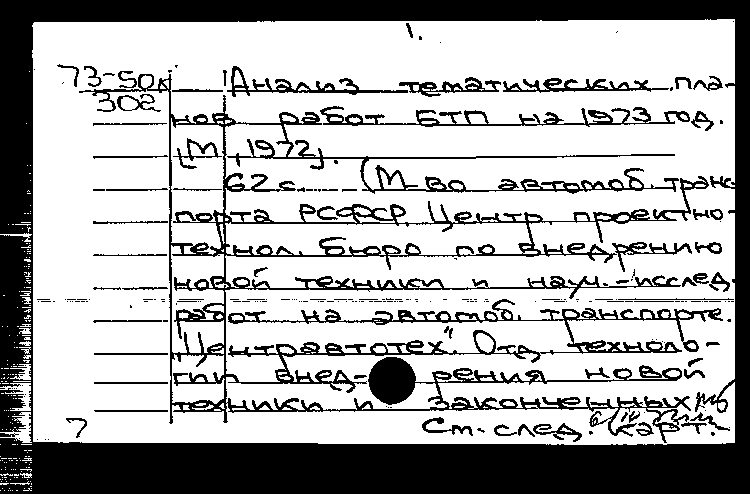 1.
73-50к
302
Анализ тематических пла-
нов работ БТП на 1973 год.
[М., 1972].
62 с. (М-во автомоб. транс-
порта РСФСР. Центр. проектно-
технол. бюро по внедрению
новой техники и науч.-исслед.
работ на автомоб. транспорте.
"Центравтотех". Отд. техноло-
гии внед-рения новой
техники и законченных
7 См. след. карт.